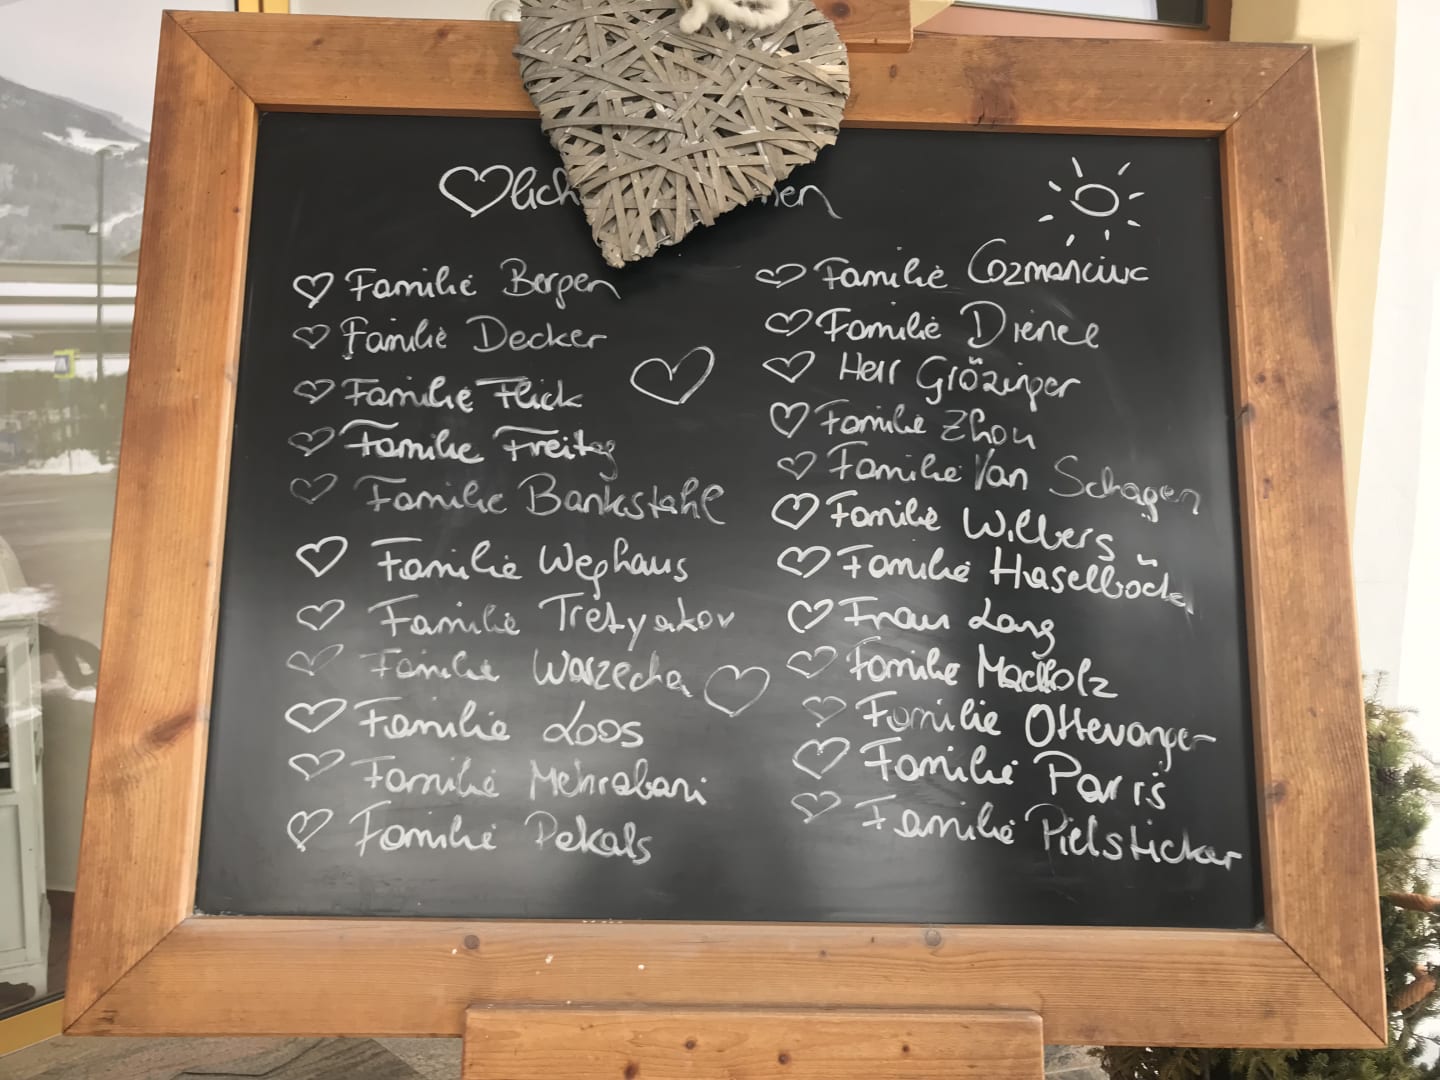 lich
Familie Bergen
Familie Decker
Familie Flick
Familie Freitag
Familie Bankstahl
Familie Weghaus
Familie Tretyakov
Familie Warzecha
Familie Loos
Familie Mehrabani
Familie Pekals
Familie Cozmanciuc
Familie Dienel
Herr Grözinger
Familie Zhou
Familie Van Schagen
Familie Wilbers
Familie Haselböck
Frau Lang
Familie Macholz
Familie Ottevanger
Familie Parris
Familie Pielsticker